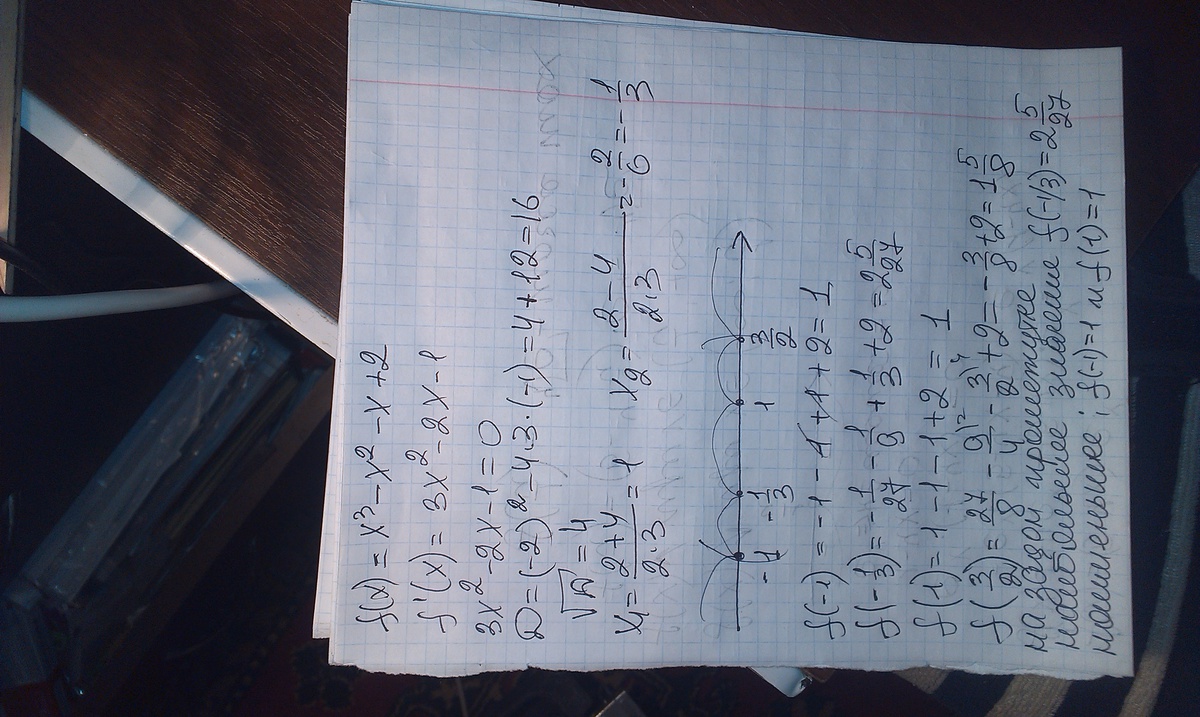 f(x) = x³ - x² - x + 2
f'(x) = 3x² - 2x - 1
3x² - 2x - 1 = 0
D = (-2)² - 4·3·(-1) = 4 + 12 = 16
√D = 4
x₁ = (2+4)/(2·3) = 1   x₂ = (2-4)/(2·3) = -2/6 = -1/3
-1   -1/3   1   3/2
f(-1) = -1 - 1 + 1 + 2 = 1
f(-1/3) = -1/27 - 1/9 + 1/3 + 2 = 2 5/27
f(1) = 1 - 1 - 1 + 2 = 1
f(3/2) = 27/8 - 9/4 - 3/2 + 2 = -3/8 + 2 = 1 5/8
на задом промежутке
наибольшее значение f(-1/3) = 2 5/27
наименьшее: f(-1) = 1 и f(1) = 1